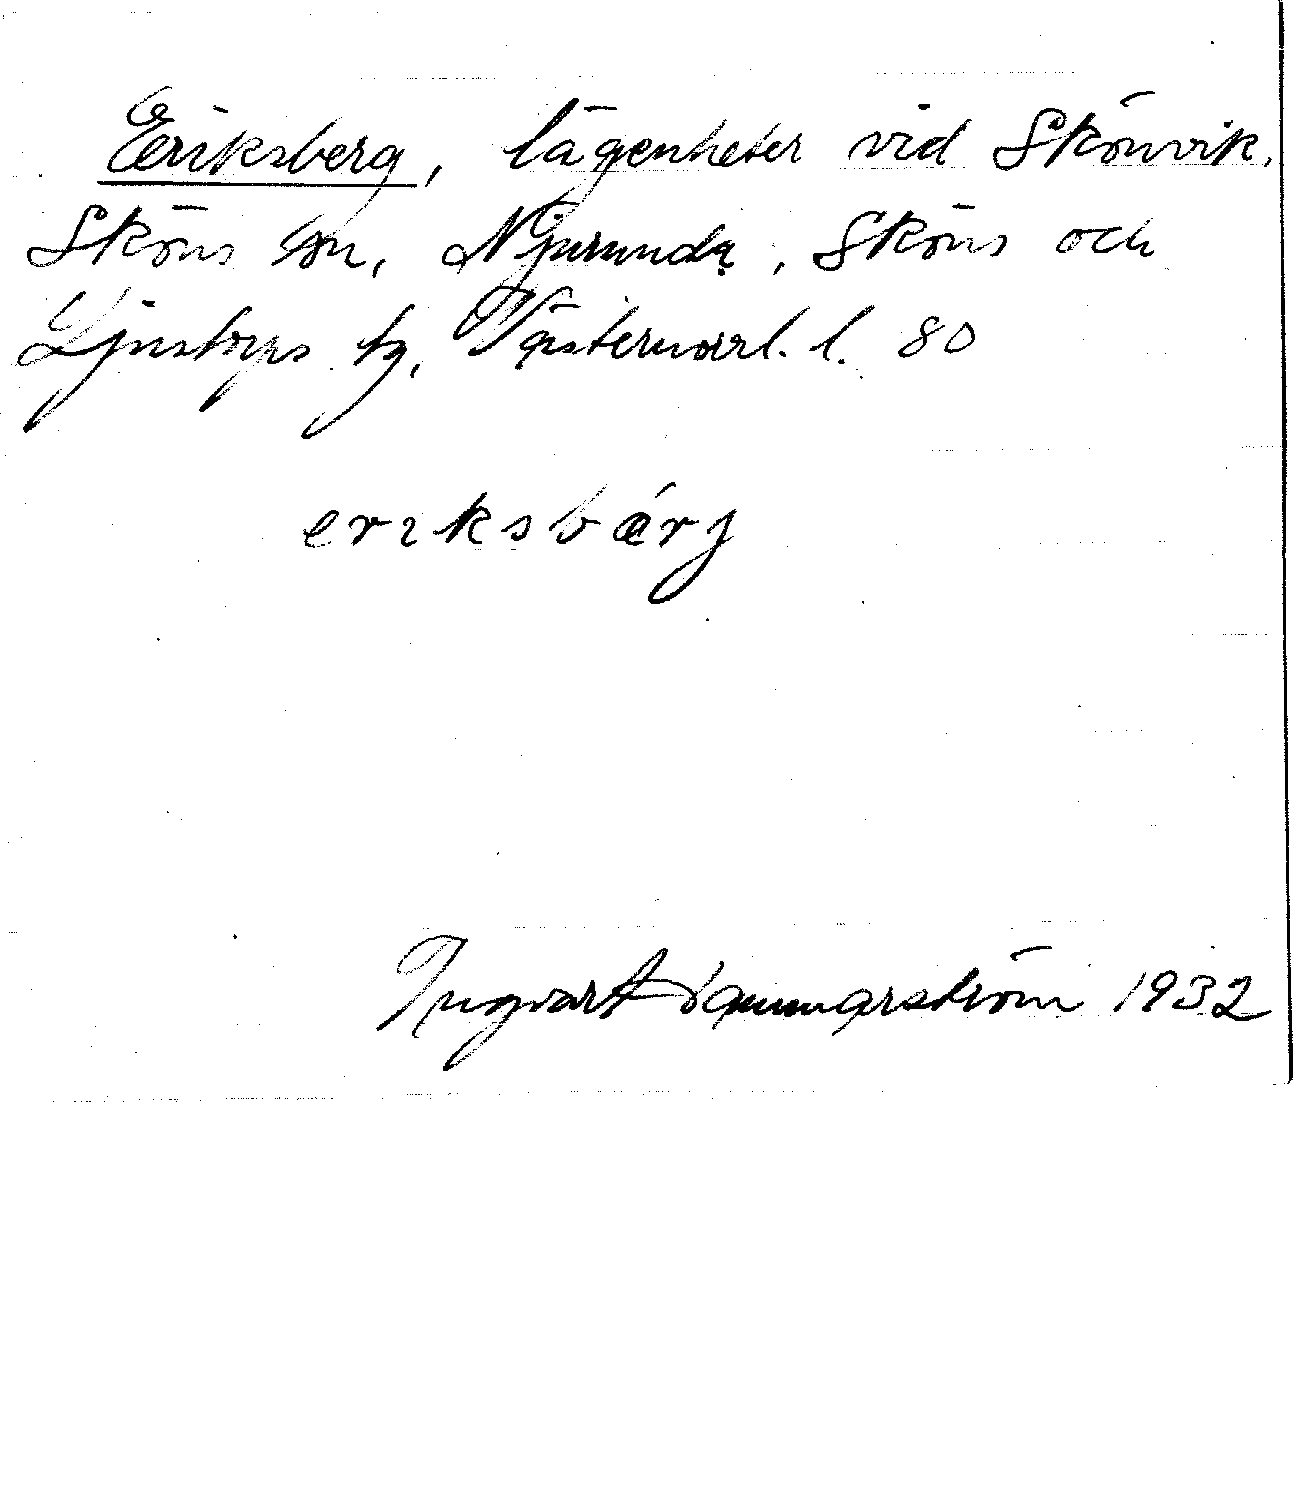 Eriksberg, lägenheter vid Skönvik,
Sköns sn, Njurunda, Sköns och
Ljustorps tg, Västernorrl. l. 80
eriksbærj
Ingvar Hammarström 1932